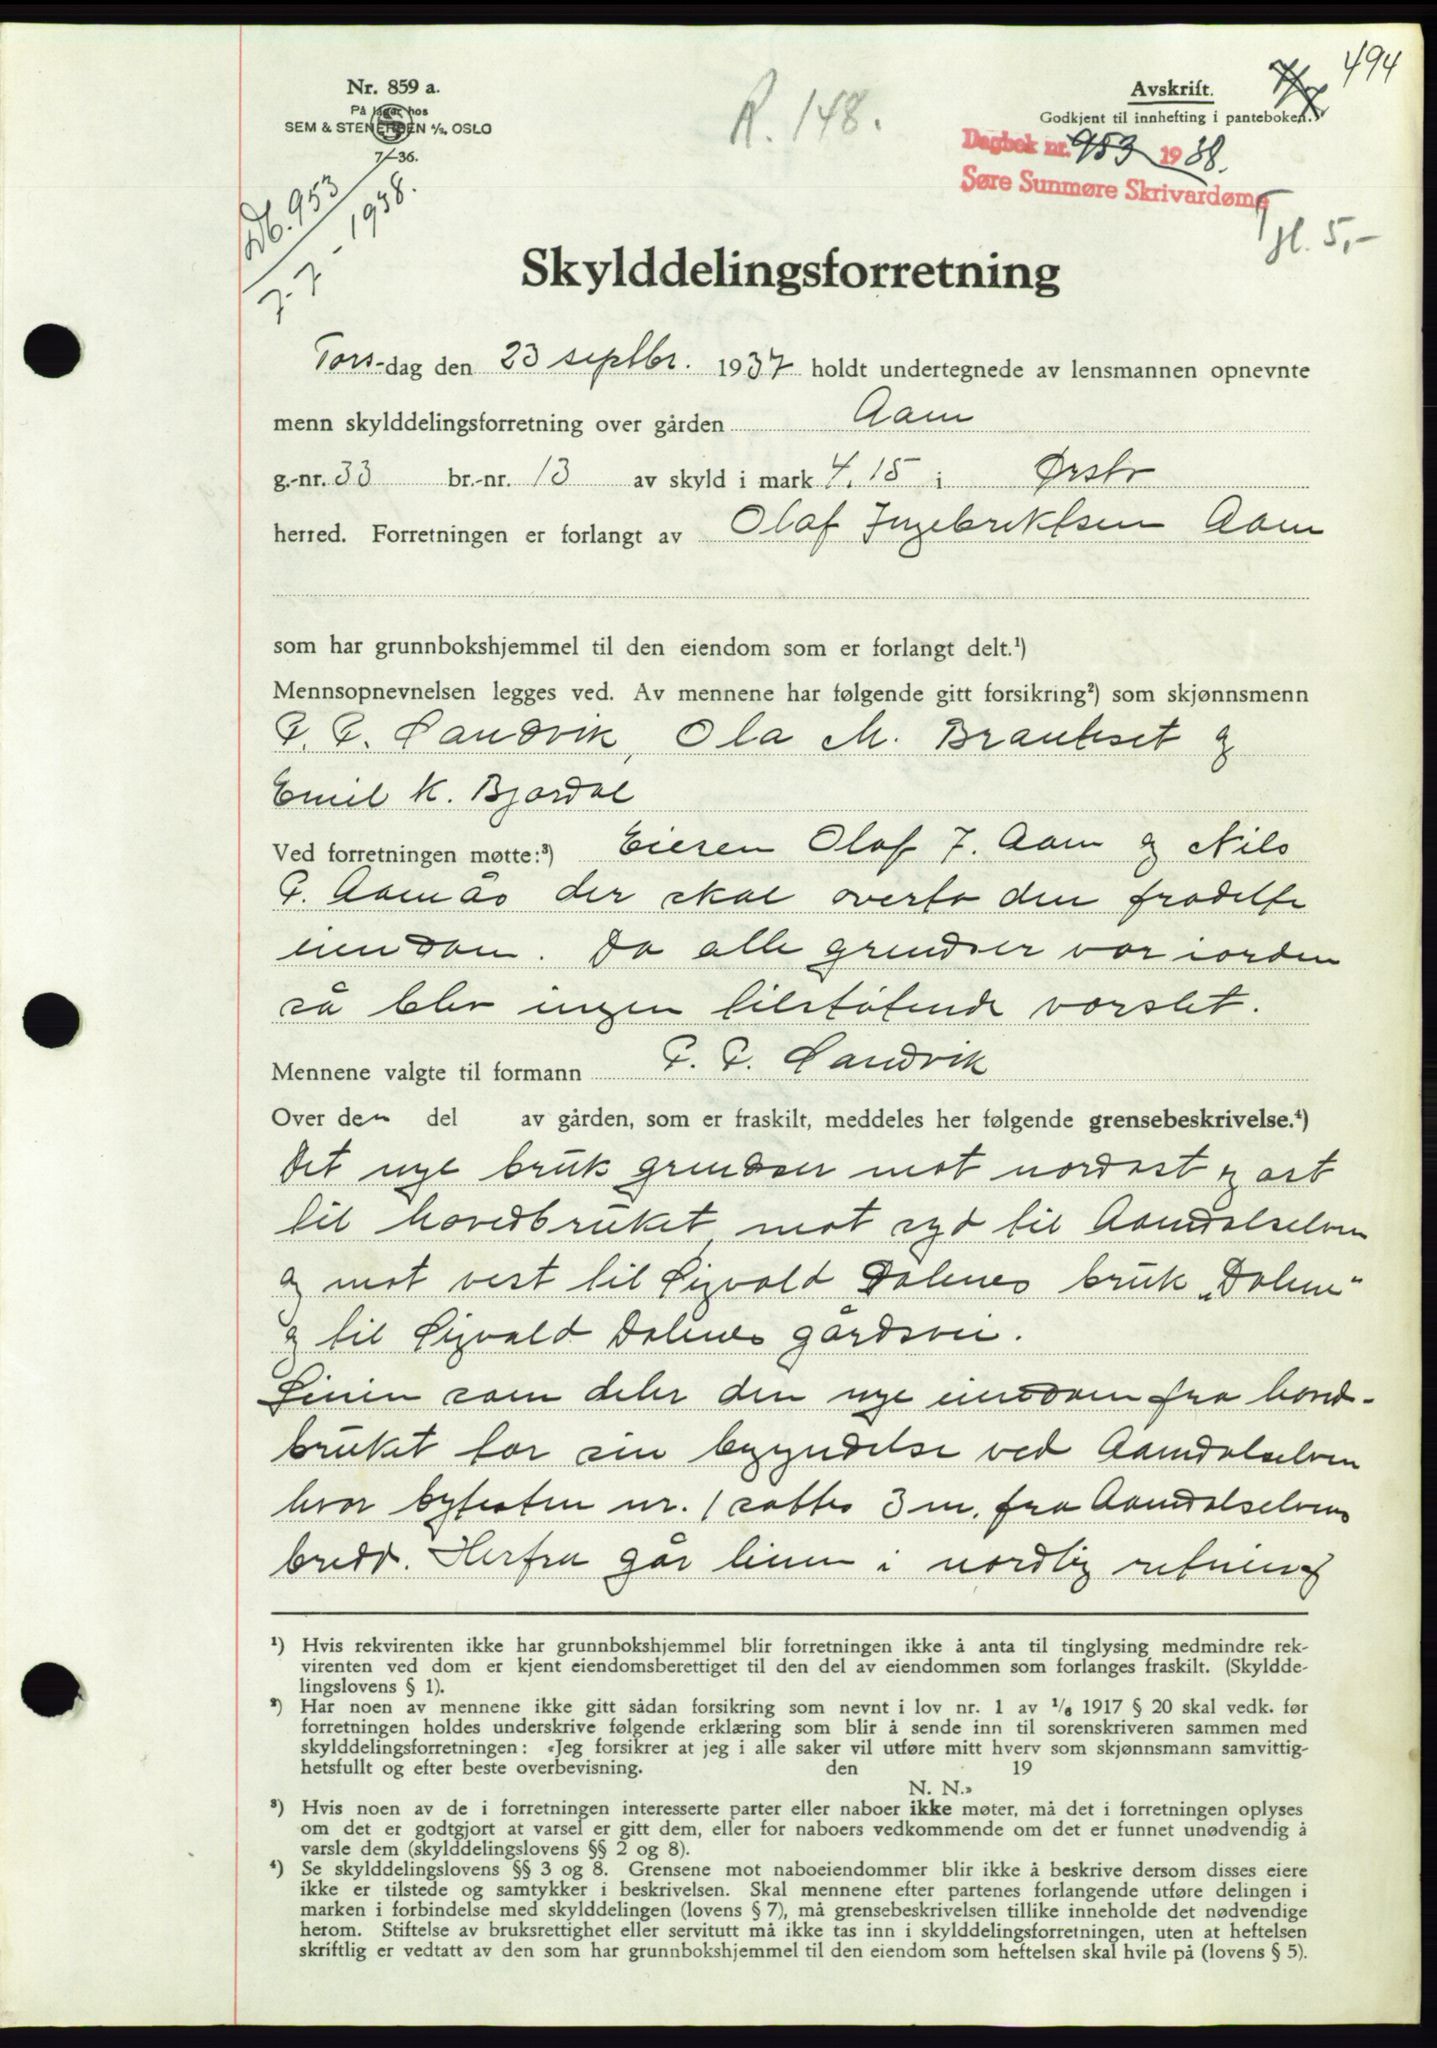 494
Nr. 859 a.
På lager hos
SEM & STENERSEN A/S, OSLO
7/-36.
R. 148.
Avskrift.
Godkjent til innhefting i panteboken.
Dagbok nr. 953 1938.
Søre Sunmøre Skrivardøme
Db. 953
7-7-1938.
gl. 5,-
Skylddelingsforretning
Tors-dag den 23 septbr. 1937 holdt undertegnede av lensmannen opnevnte
menn skylddelingsforretning over gården Aam
g.-nr. 33 br.-nr. 13 av skyld i mark 4,15 i Ørsta
herred. Forretningen er forlangt av Olaf Ingebriktsen Aam
som har grunnbokshjemmel til den eiendom som er forlangt delt.¹)
Mennsopnevnelsen legges ved. Av mennene har følgende gitt forsikring²) som skjønnsmenn
P. P. Sandvik, Ola M. Brauteset og
Emil K. Bjørdal
Ved forretningen møtte:³) Eieren Olaf I. Aam og Nils
P. Aamås der skal overta den fradelte
eiendom. Da alle grendser var iorden
så blev ingen tilstøtende varslet.
Mennene valgte til formann P. P. Sandvik
Over den del av gården, som er fraskilt, meddeles her følgende grensebeskrivelse.⁴)
Det nye bruk grendser mot nordost og ost
til hovedbruket, mot syd til Aamdalselven
og mot vest til Sigvald Dalenes bruk „Dalene"
og til Sigvald Dalenes gårdsvei.
Linien som deler den nye eiendom fra hoved-
bruket tar sin begyndelse ved Aamdalselven
hvor bytesten nr. 1 sattes 3 m. fra Aamdalselvens
bredd. Herfra går linen i nordlig retning
¹) Hvis rekvirenten ikke har grunnbokshjemmel blir forretningen ikke å anta til tinglysing medmindre rek-
virenten ved dom er kjent eiendomsberettiget til den del av eiendommen som forlanges fraskilt. (Skyldde-
lingslovens § 1).
²) Har noen av mennene ikke gitt sådan forsikring som nevnt i lov nr. 1 av ¹/₆ 1917 § 20 skal vedk. før
forretningen holdes underskrive følgende erklæring som blir å sende inn til sorenskriveren sammen med
skylddelingsforretningen: «Jeg forsikrer at jeg i alle saker vil utføre mitt hverv som skjønnsmann samvittig-
hetsfullt og efter beste overbevisning. den 19
N. N.»
³) Hvis noen av de i forretningen interesserte parter eller naboer ikke møter, må det i forretningen oplyses
om det er godtgjort at varsel er gitt dem, eller for naboers vedkommende om det er funnet unødvendig å
varsle dem (skylddelingslovens §§ 2 og 8).
⁴) Se skylddelingslovens §§ 3 og 8. Grensene mot naboeiendommer blir ikke å beskrive dersom disses eiere
ikke er tilstede og samtykker i beskrivelsen. Skal mennene efter partenes forlangende utføre delingen i
marken i forbindelse med skylddelingen (lovens § 7), må grensebeskrivelsen tillike inneholde det nødvendige
herom. Stiftelse av bruksrettighet eller servitutt må ikke tas inn i skylddelingsforretningen, uten at heftelsen
skriftlig er vedtatt av den som har grunnbokshjemmel til den eiendom som heftelsen skal hvile på (lovens § 5).